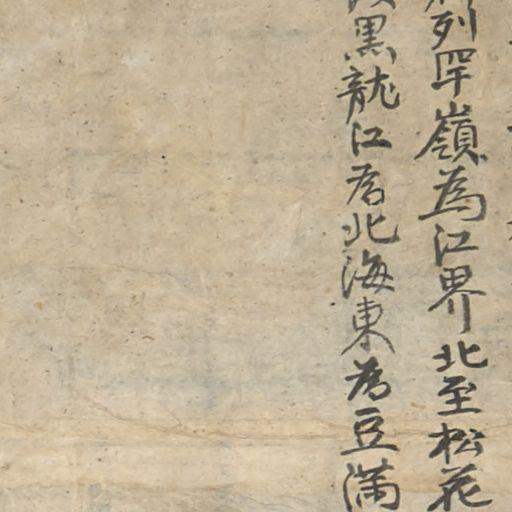 列罕嶺為江界北至松花
黑龍江为北海東为豆滿